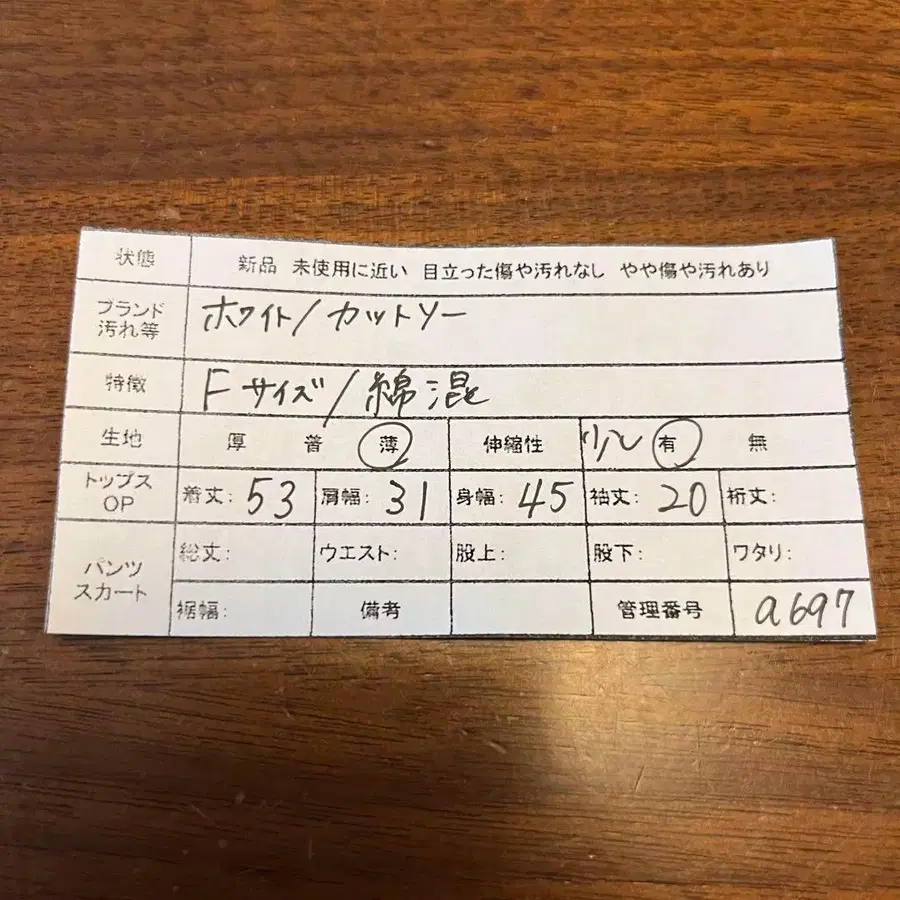 状態 新品 未使用に近い 目立った傷や汚れなし やや傷や汚れあり
ブランド 汚れ等 ホワイト/カットソー
特徴 Fサイズ/綿混
生地 厚 普 薄 伸縮性 少し 有 無
トップス OP 着丈: 53 肩幅: 31 身幅: 45 袖丈: 20 裄丈:
パンツ スカート 総丈: ウエスト: 股上: 股下: ワタリ:
裾幅: 備考 管理番号 a697